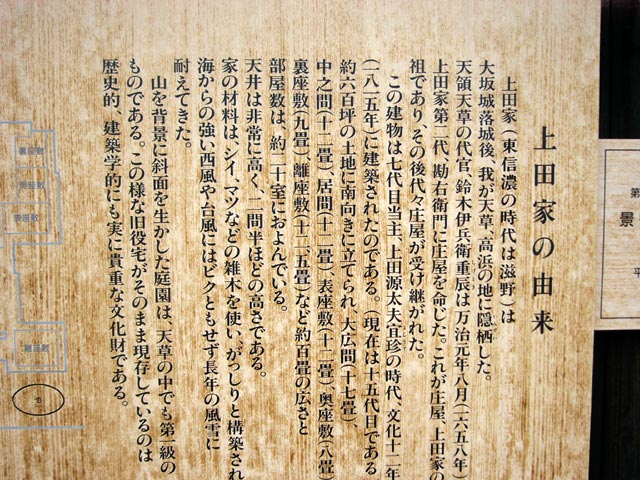 上田家の由来
上田家(東信濃の時代は滋野)は
大坂城落城後、我が天草、高浜の地に隠栖した。
天領天草の代官、鈴木伊兵衛重辰は万治元年八月(一六五八年)
上田家第二代、勘右衛門に庄屋を命じた。これが庄屋、上田家の
祖であり、その後代々庄屋が受け継がれた。
この建物は七代目当主、上田源太夫宜珍の時代、文化十二年
(一八一五年)に建築されたのである。(現在は十五代目である
約六百坪の土地に南向きに立てられ、大広間(十七畳)、
中之間(十二畳)、居間(十二畳)、表座敷(十二畳)、奥座敷(八畳)
裏座敷(九畳)、離座敷(十二、五畳)など約百畳の広さと
部屋数は、約二十室におよんでいる。
天井は非常に高く、二間半ほどの高さである。
家の材料は、シイ、マツなどの雑木を使い、がっしりと構築され
海からの強い西風や台風にはビクともせず長年の風雪に
耐えてきた。
山を背景に斜面を生かした庭園は、天草の中でも第一級の
ものである。この様な旧役宅がそのまま現存しているのは
歴史的、建築学的にも実に貴重な文化財である。
裏座敷
奥座敷
表座敷
離座敷
第
景
平